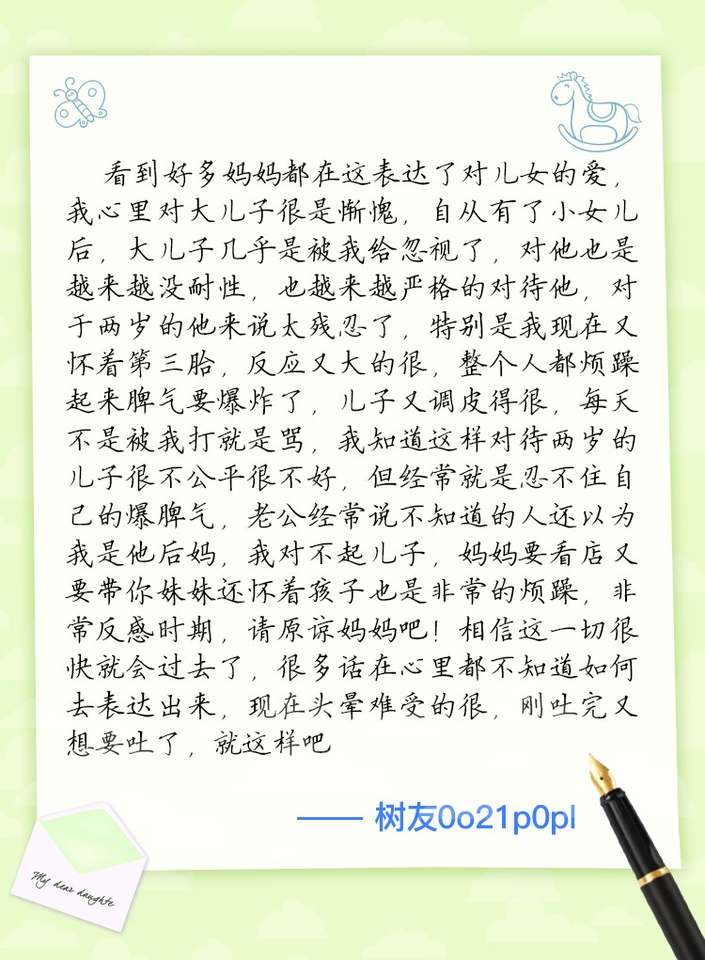 看到好多妈妈都在这表达了对儿女的爱，
我心里对大儿子很是惭愧，自从有了小女儿
后，大儿子几乎是被我给忽视了，对他也是
越来越没耐性，也越来越严格的对待他，对
于两岁的他来说太残忍了，特别是我现在又
怀着第三胎，反应又大的很，整个人都烦躁
起来脾气要爆炸了，儿子又调皮得很，每天
不是被我打就是骂，我知道这样对待两岁的
儿子很不公平很不好，但经常就是忍不住自
己的爆脾气，老公经常说不知道的人还以为
我是他后妈，我对不起儿子，妈妈要看店又
要带你妹妹还怀着孩子也是非常的烦躁，非
常反感时期，请原谅妈妈吧！相信这一切很
快就会过去了，很多话在心里都不知道如何
去表达出来，现在头晕难受的很，刚吐完又
想要吐了，就这样吧
—— 树友0o21p0pl
My dear daughte